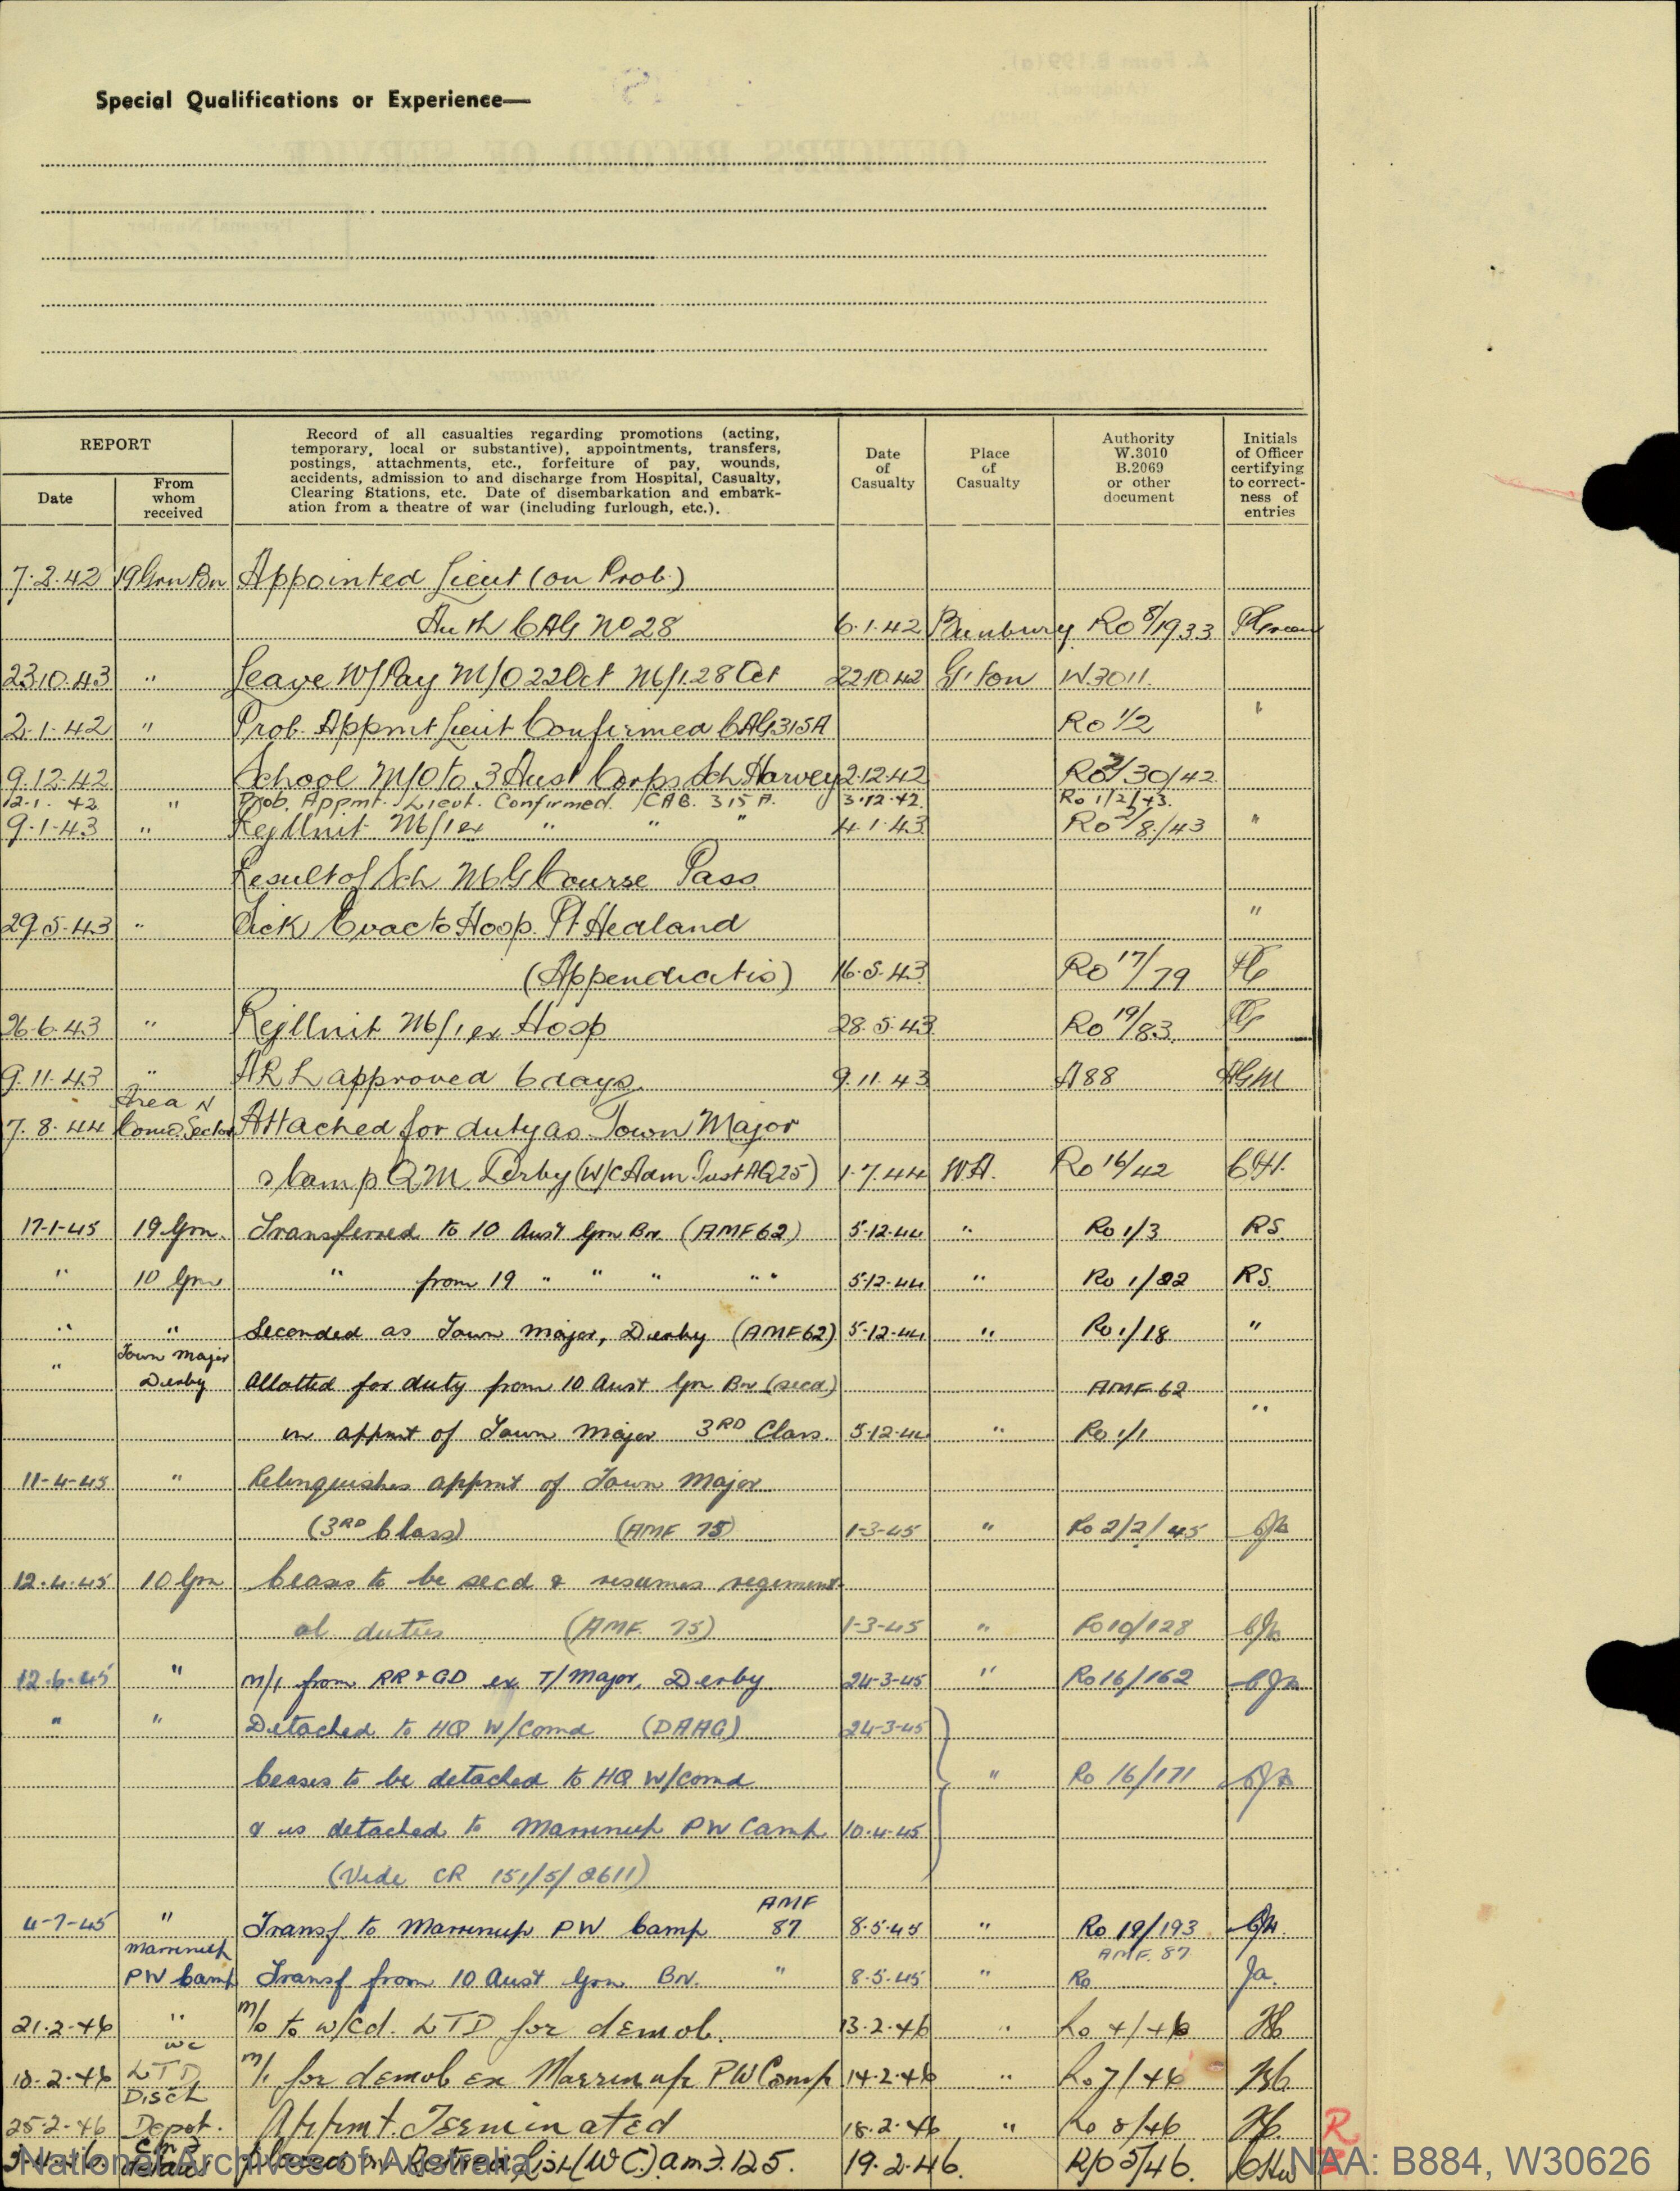 Special Qualifications or Experience—
REPORT
Date
From whom received
Record of all casualties regarding promotions (acting,
temporary, local or substantive), appointments, transfers,
postings, attachments, etc., forfeiture of pay, wounds,
accidents, admission to and discharge from Hospital, Casualty,
Clearing Stations, etc. Date of disembarkation and embark-
ation from a theatre of war (including furlough, etc.).
Date of Casualty
Place of Casualty
Authority W.3010 B.2069 or other document
Initials of Officer certifying to correct-ness of entries
7.2.42 19 Grn Bn Appointed Lieut (on Prob.)
Auth CAG No 28 6.1.42 Bunbury Ro 8/1933
23.10.43 " Leave W/Pay M/O 22 Oct M/I 28 Oct 22.10.42 G'ton W.3011.
2.1.42 " Prob. Appmt Lieut Confirmed CAG 315A Ro 1/2 "
9.12.42 School M/O to 3 Aust Corps Sch Harvey 2.12.42 30/42
12.1.42 " Prob. Appmt. Lieut. Confirmed. CAG. 315A. 3.12.42. Ro 1/2/43.
9.1.43 " Rej Unit M/I ex " " " 4.1.43 Ro 2/8/43 "
Result of Sch MG Course Pass
29.5.43 " Sick Evac to Hosp. Pt Hedland "
(Appendicitis) 16.5.43 Ro 17/79
26.6.43 " Rej Unit M/I ex Hosp 28.5.43 Ro 19/83
9.11.43 " ARL approved 6 days. 9.11.43 A88
7.8.44 Area N Comd. Sector Attached for duty as Town Major
& Camp QM. Derby (W/C Adm Inst AQ25) 1.7.44 W.A. Ro 16/42
17-1-45 19 Grn. Transferred to 10 Aust Grn Bn (AMF 62) 5-12-44 " Ro 1/3 RS.
" 10 Grn " from 19 " " " " " 5-12-44 " Ro 1/22 RS.
" " Seconded as Town Major, Derby (AMF 62) 5-12-44 " Ro 1/18 "
" Town Major Derby Allotted for duty from 10 Aust Grn Bn (secd.) AMF 62
in appmt of Town Major 3RD Class. 5-12-44 " Ro 1/1 "
11-4-45 " Relinquishes appmt of Town Major
(3RD Class) (AMF 75) 1-3-45 " Ro 2/2/45
12.4.45 10 Grn Ceases to be secd & resumes regiment-
al duties (AMF. 75) 1-3-45 " Ro 10/128
12.6.45 " M/I from RR & GD ex T/Major, Derby 24-3-45 " Ro 16/162
" " Detached to HQ W/Comd (DAAG) 24-3-45
Ceases to be detached to HQ W/Comd " Ro 16/171
& is detached to Marrinup PW Camp 10.4.45
(Vide CR 151/5/2611)
4-7-45 " Transf. to Marrinup PW Camp AMF 87 8.5.45 " Ro 19/193
Marrinup PW Camp Transf from 10 Aust Grn Bn. " 8.5.45 " AMF. 87 Ro Ja.
21.2.46 " M/O to W/Cd. LTD for demob. 13.2.46 " Ro 4/46
18.2.46 WC LTD M/I for demob ex Marrinup PW Camp 14.2.46 " Ro 7/46
25.2.46 Disch Depot. Appmt. Terminated 18.2.46 " Ro 8/46
placed on Retired List (WC) amf. 125. 19.2.46. R/O 5/46.
R
National Archives of Australia
NAA: B884, W30626